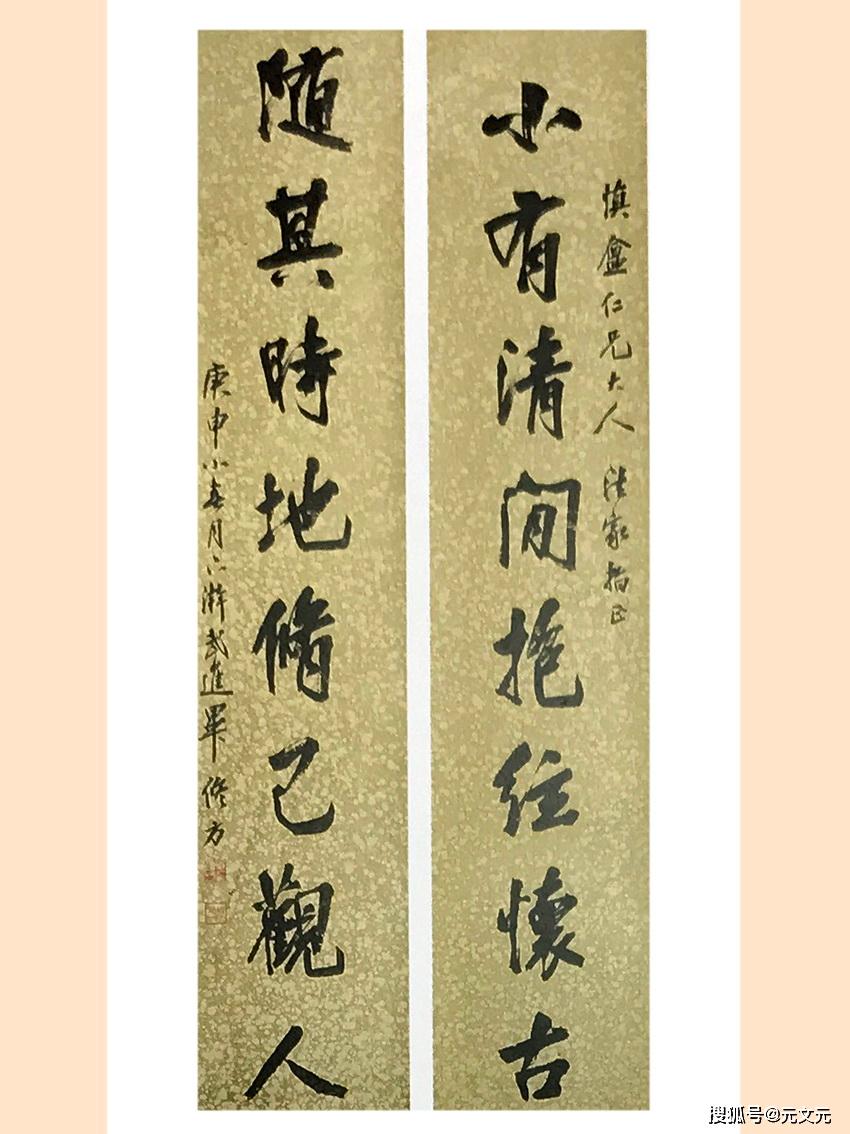 慎盦仁兄大人 法家指正
小有清閒抱絃懷古
随其時地脩己觀人
庚申小春月下澣武進畢修方
搜狐号@元文元